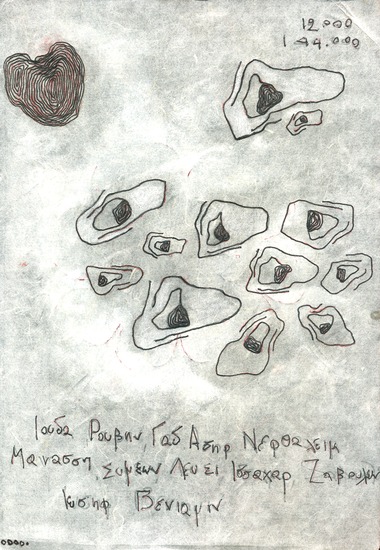 12.000
144.000
Ιουδα Ρουβην Γαδ Ασηρ Νεφθαλειμ
Μανασση Συμεων Λευει Ισσαχαρ Ζαβουλων
Ιωσηφ Βενιαμιν